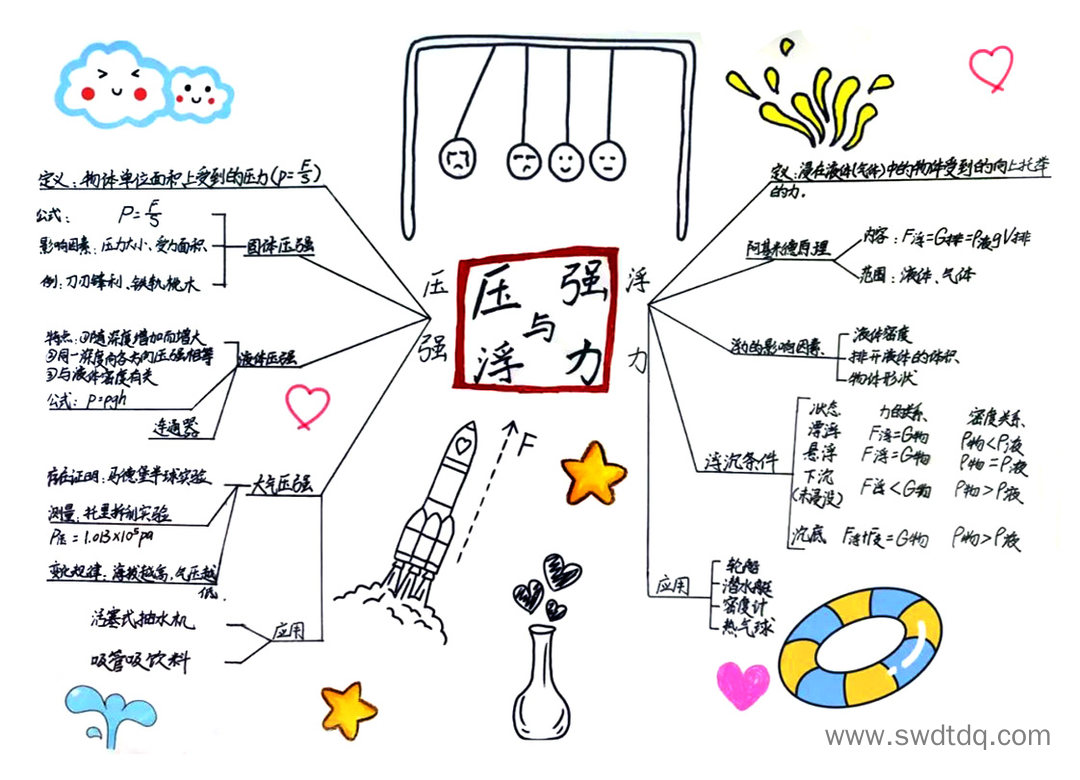 压强
与
浮力
压强
定义：物体单位面积上受到的压力(P=F/S)
固体压强
公式： P=F/S
影响因素：压力大小、受力面积
例：刀刃锋利、铁轨枕木
液体压强
特点：①随深度增加而增大
②同一深度向各方向压强相等
③与液体密度有关
公式：P=ρgh
连通器
大气压强
存在证明：马德堡半球实验
测量：托里拆利实验
P压=1.013×10⁵pa
变化规律：海拔越高，气压越
低.
应用
活塞式抽水机
吸管吸饮料
浮力
定义：浸在液体(气体)中的物体受到的向上托举
的力.
阿基米德原理
内容：F浮=G排=ρ液gV排
范围：液体、气体
浮力的影响因素
液体密度
排开液体的体积
物体形状
浮沉条件
状态 力的关系 密度关系
漂浮 F浮=G物 ρ物<ρ液
悬浮 F浮=G物 ρ物=ρ液
下沉 F浮<G物 ρ物>ρ液
(未浸没)
沉底 =G物 ρ物>ρ液
应用
轮船
潜水艇
密度计
热气球
F
www.swdtdq.com